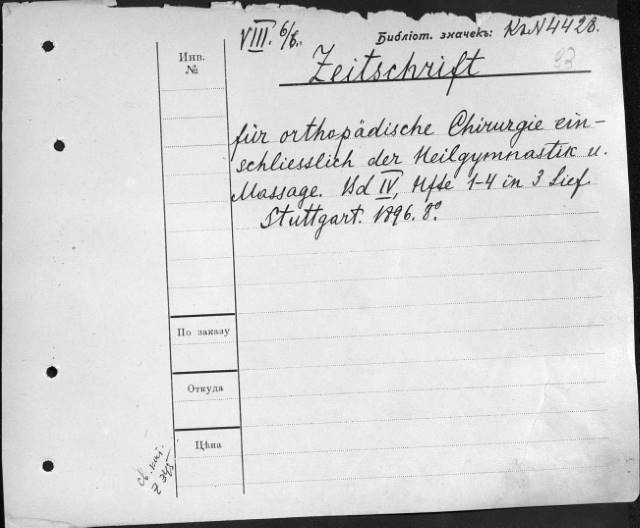 VIII. 6/б.
Библіот. значекъ: КкN442В.
Инв.
№
Zeitschrift
93
für orthopädische Chirurgie ein-
schliesslich der Heilgymnastik u.
Massage. Bd IV, Hfte 1-4 in 3 Lief.
Stuttgart. 1896. 8º.
По заказу
Откуда
Цѣна